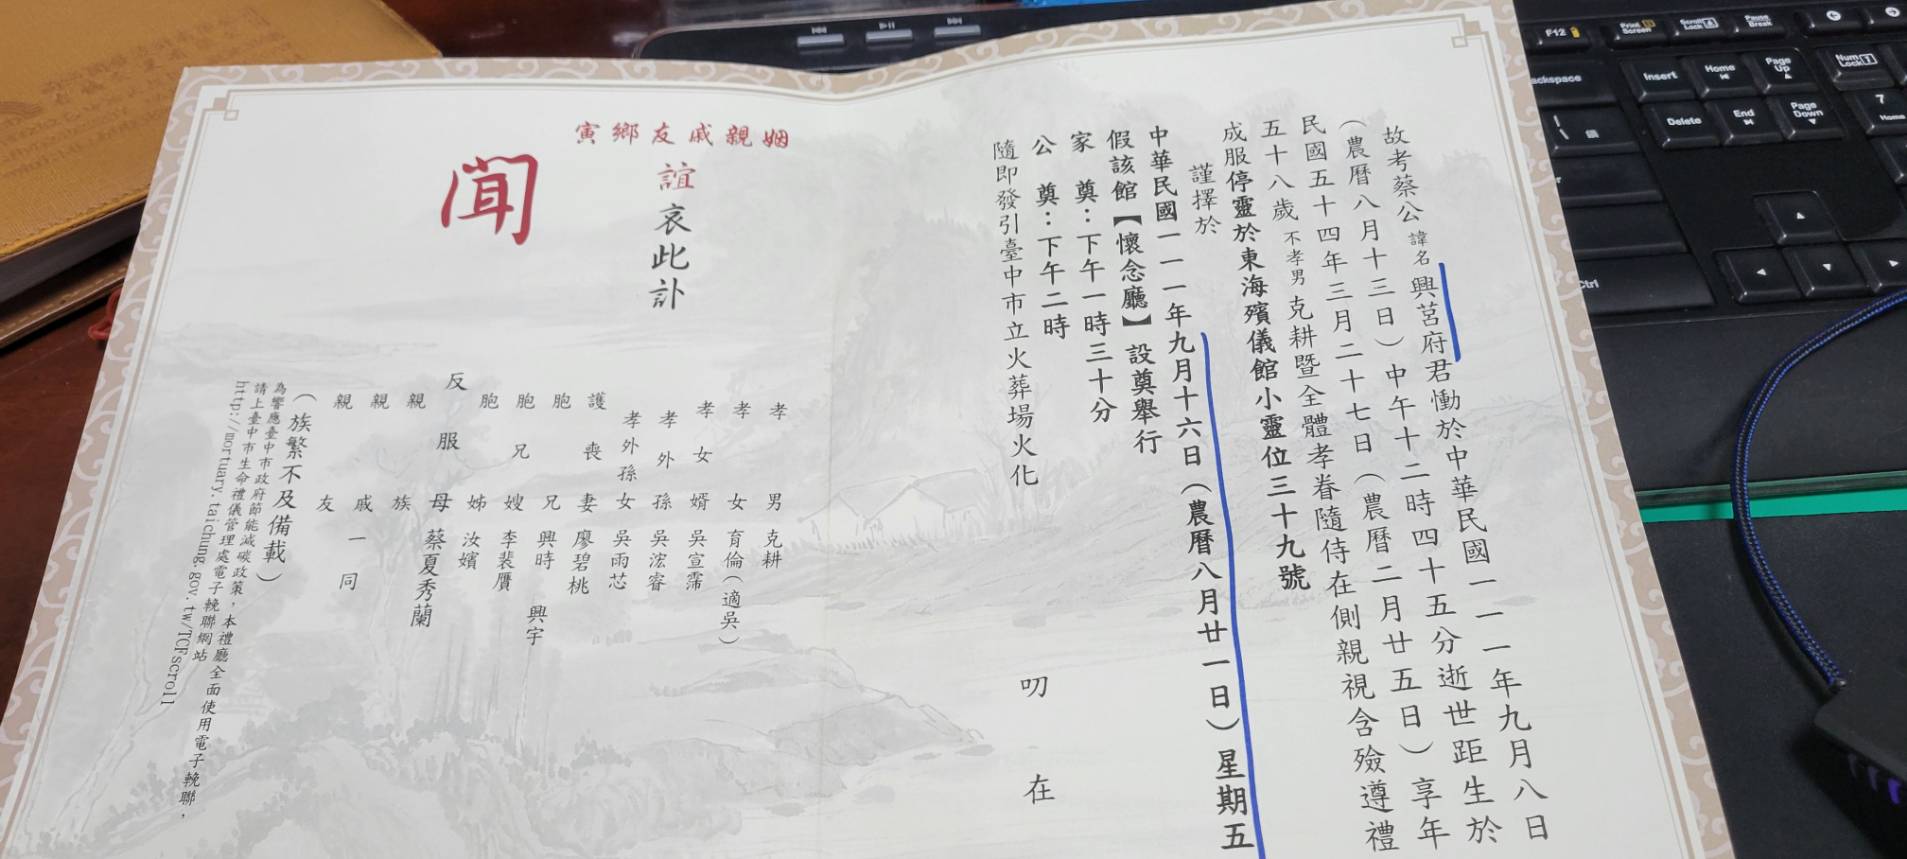 故考蔡公諱名興莒府君慟於中華民國一一一年九月八日
（農曆八月十三日）中午十二時四十五分逝世距生於
民國五十四年三月二十七日（農曆二月廿五日）享年
五十八歲不孝男克耕暨全體孝眷隨侍在側親視含殮遵禮
成服停靈於東海殯儀館小靈位三十九號
謹擇於
中華民國一一一年九月十六日（農曆八月廿一日）星期五
假該館【懷念廳】設奠舉行
家奠：下午一時三十分
公奠：下午二時
隨即發引臺中市立火葬場火化
叨在
姻親戚友鄉寅
誼哀此訃
聞
孝男克耕
孝女育倫（適吳）
孝女婿吳宣霈
孝外孫吳浤睿
孝外孫女吳雨芯
護喪妻廖碧桃
胞兄興時 興宇
胞兄嫂李裴贋
胞姊汝嬪
反服母蔡夏秀蘭
親族
親戚一同
親友
（族繁不及備載）
為響應臺中市政府節能減碳政策，本禮廳全面使用電子輓聯，
請上臺中市生命禮儀管理處電子輓聯網站
http://mortuary.taichung.gov.tw/TCFscroll
F12
Print Screen
Scroll Lock
Pause Break
ackspace
Insert
Home
Page Up
Num Lock
Delete
End
Page Down
7
Home
Ctrl